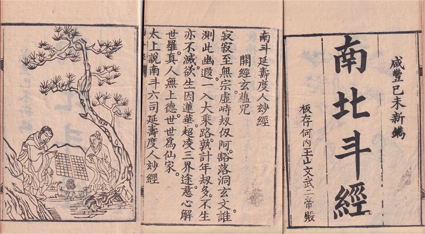 咸豐己未新
南北斗經
板存何內玉山文武二帝殿
南斗延壽度人妙經
開經玄蘊咒
寂寂至無宗虛峙劫仞阿豁落洞玄文誰
測此幽遐一入大乘路孰計年劫多不生
亦不滅欲生因蓮華超凌三界途慈心解
世羅真人無上德世世為仙家
太上說南斗六司延壽度人妙經